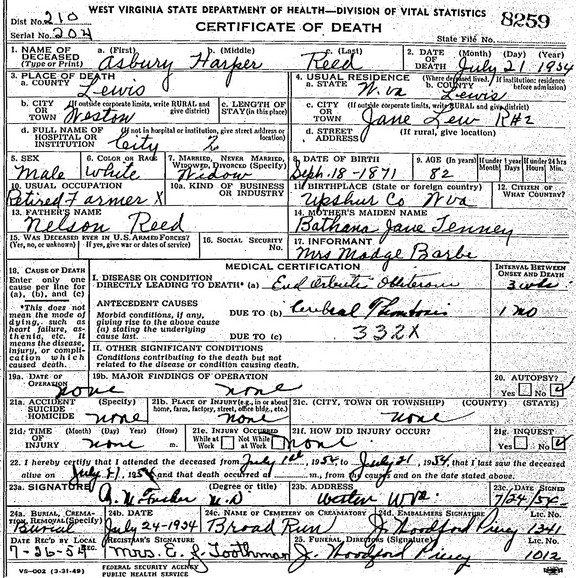 WEST VIRGINIA STATE DEPARTMENT OF HEALTH—DIVISION OF VITAL STATISTICS
Dist No. 210
CERTIFICATE OF DEATH
8259
Serial No. 204
State File No.
1. NAME OF DECEASED (Type or Print) a. (First) b. (Middle) c. (Last) 2. DATE OF DEATH (Month) (Day) (Year)
Asbury Harper Reed July 21, 1954
3. PLACE OF DEATH 4. USUAL RESIDENCE (Where deceased lived. If institution: residence before admission)
a. COUNTY Lewis a. STATE W. Va b. COUNTY Lewis
b. CITY OR TOWN (If outside corporate limits, write RURAL and give district) c. LENGTH OF STAY (in this place) c. CITY OR TOWN (If outside corporate limits, write RURAL and give district)
Weston Jane Lew R#2
d. FULL NAME OF HOSPITAL OR INSTITUTION (If not in hospital or institution, give street address or location) d. STREET ADDRESS (If rural, give location)
City 2
5. SEX 6. COLOR OR RACE 7. MARRIED, NEVER MARRIED, WIDOWED, DIVORCED (Specify) 8. DATE OF BIRTH 9. AGE (In years) If under 1 year Months Days If under 24 hrs Hours Min.
Male White Widow Sept. 18-1871 82
10. USUAL OCCUPATION 10a. KIND OF BUSINESS OR INDUSTRY 11. BIRTHPLACE (State or foreign country) 12. CITIZEN OF WHAT COUNTRY?
Retired Farmer X Upshur Co W Va
13. FATHER'S NAME 14. MOTHER'S MAIDEN NAME
Nelson Reed Bathana Jane Tenney
15. WAS DECEASED EVER IN U.S. ARMED FORCES? (Yes, no, or unknown) If yes, give war or dates of service) 16. SOCIAL SECURITY No. 17. INFORMANT
Mrs Madge Barbe
MEDICAL CERTIFICATION
18. CAUSE OF DEATH
Enter only one cause per line for (a), (b), and (c)
*This does not mean the mode of dying, such as heart failure, asthenia, etc. It means the disease, injury, or complication which caused death.
I. DISEASE OR CONDITION DIRECTLY LEADING TO DEATH* (a) INTERVAL BETWEEN ONSET AND DEATH
3 wks
ANTECEDENT CAUSES
Morbid conditions, if any, giving rise to the above cause (a) stating the underlying cause last.
DUE TO (b) Cerebral Thrombosis 1 mo
DUE TO (c) 332X
II. OTHER SIGNIFICANT CONDITIONS
Conditions contributing to the death but not related to the disease or condition causing death.
19a. DATE OF OPERATION none 19b. MAJOR FINDINGS OF OPERATION none 20. AUTOPSY? Yes No
21a. ACCIDENT SUICIDE HOMICIDE (Specify) none 21b. PLACE OF INJURY (e.g., in or about home, farm, factory, street, office bldg., etc.) none 21c. (CITY, TOWN OR TOWNSHIP) (COUNTY) (STATE) none
21d. TIME OF INJURY (Month) (Day) (Year) (Hour) m. none 21e. INJURY OCCURRED While at Work Not While at Work 21f. HOW DID INJURY OCCUR? none 21g. INQUEST Yes No
22. I hereby certify that I attended the deceased from July 1st, 1954, to July 21, 1954, that I last saw the deceased
alive on July 21, 1954, and that death occurred at m., from the causes and on the date stated above.
23a. SIGNATURE (Degree or title) M.D 23b. ADDRESS Weston W Va. 23c. DATE SIGNED 7/24/54
24a. BURIAL, CREMATION, REMOVAL (Specify) 24b. DATE 24c. NAME OF CEMETERY OR CREMATORY 24d. EMBALMERS SIGNATURE LIC. NO.
Burial July 24-1954 Broad Run J. Woodford 1341
DATE REC'D BY LOCAL REG. REGISTRAR'S SIGNATURE 25. FUNERAL DIRECTORS (Signature) LIC. NO.
7-26-54 Mrs. E. J. Toothman J. Woodford 1012
VS-002 (3-31-49) FEDERAL SECURITY AGENCY
PUBLIC HEALTH SERVICE